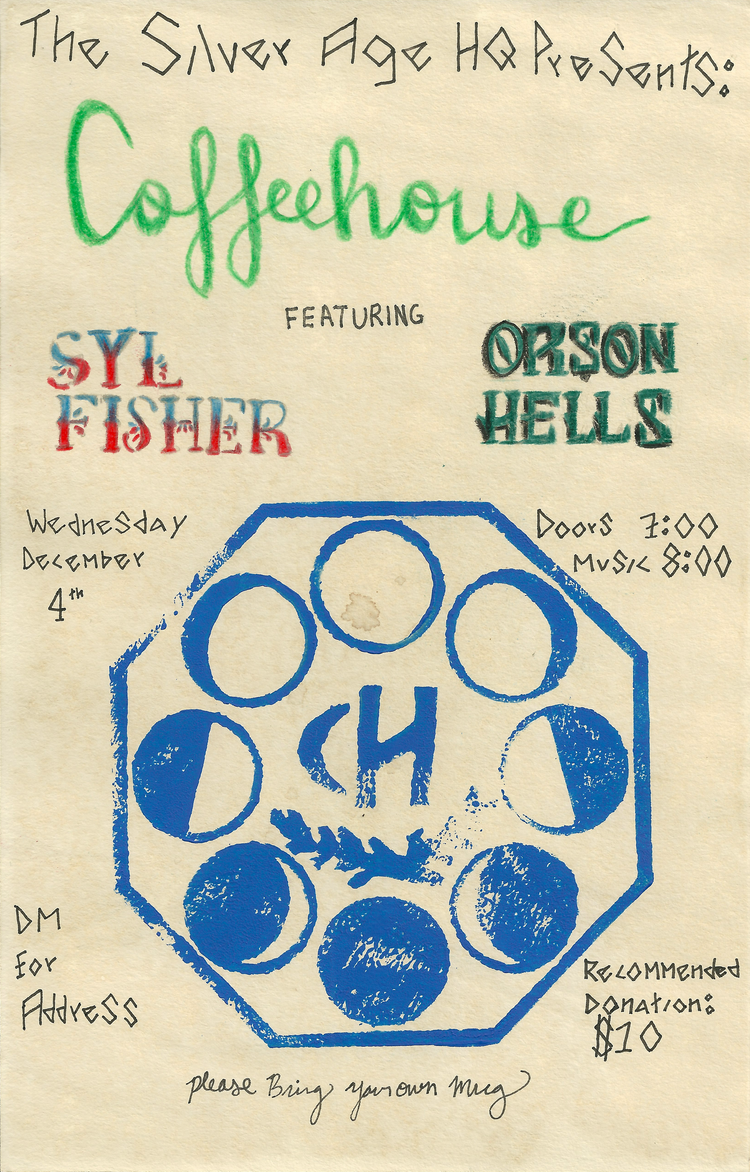 The Silver Age HQ Presents:
Coffeehouse
FEATURING
SYL
FISHER
ORSON
HELLS
Wednesday
December
4th
Doors 7:00
Music 8:00
CH
DM
For
Address
Recommended
Donation:
$10
please Bring your own Mug